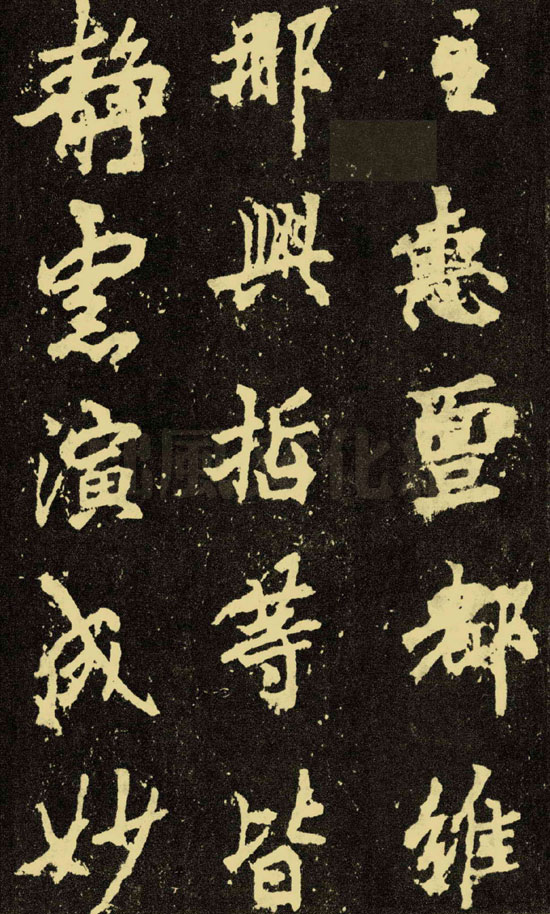 主惠亶都維
那興哲等皆
靜慮演成妙